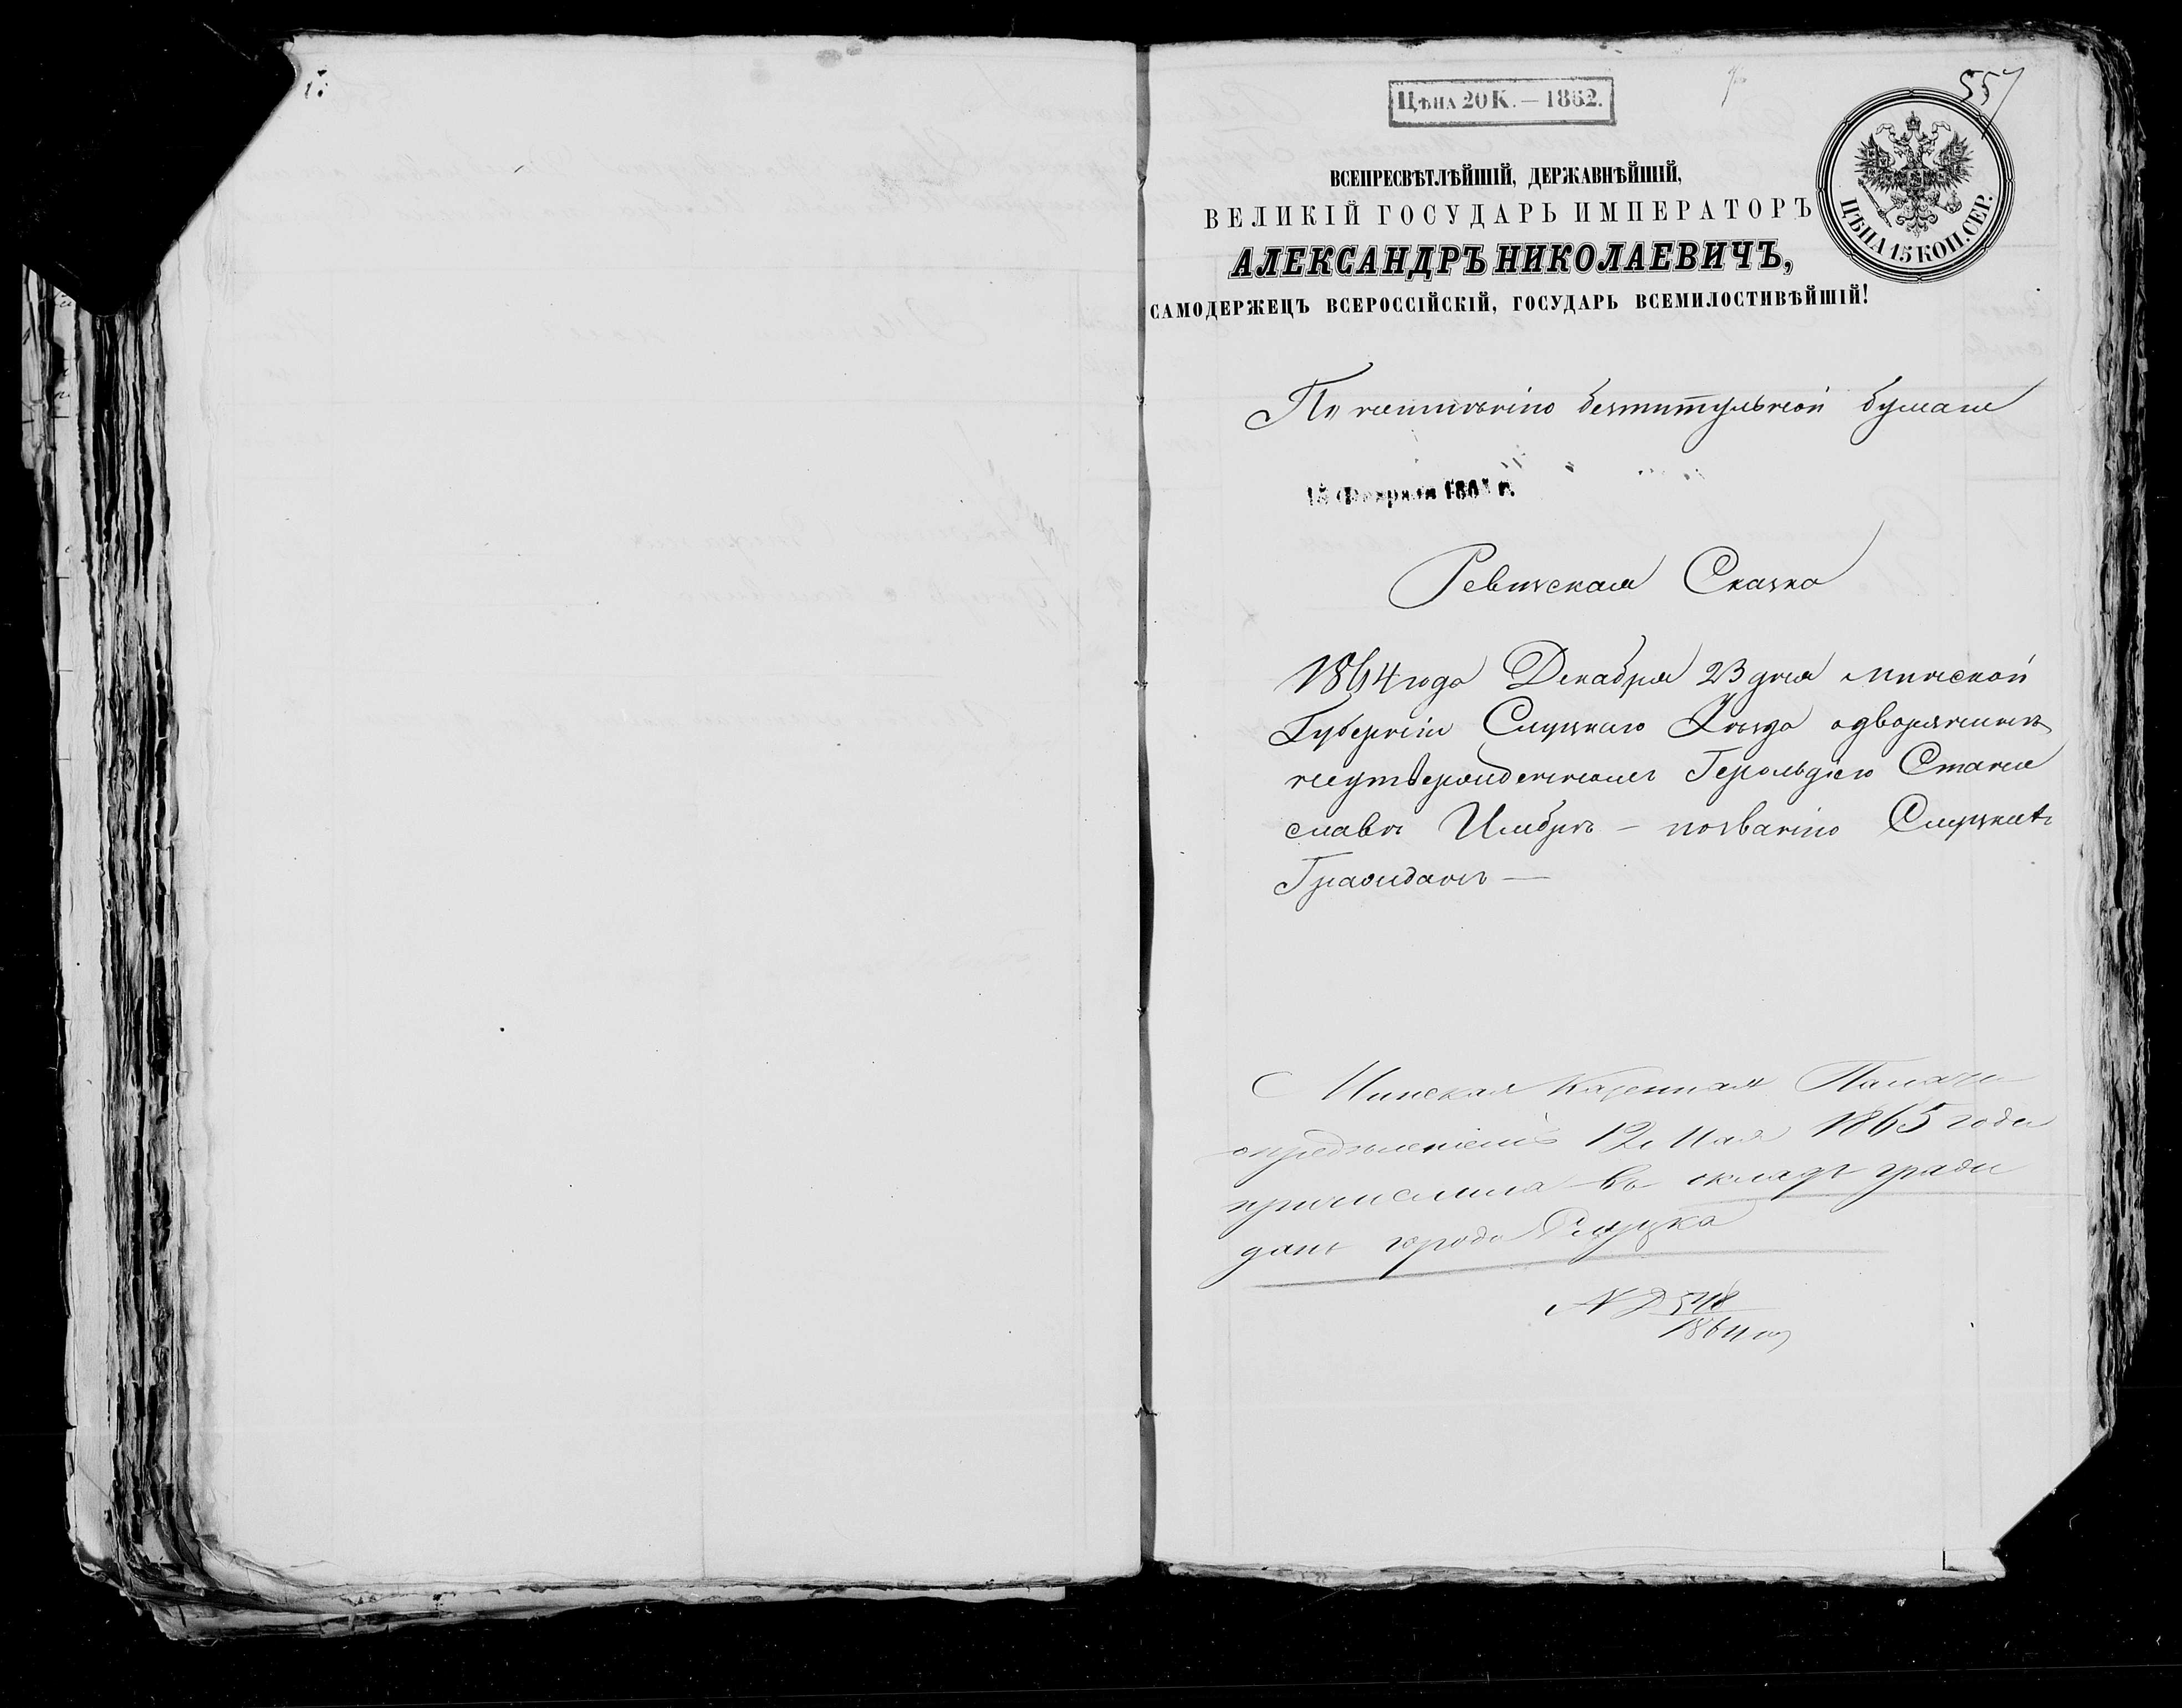 557
ЦѢНА 20 К. — 1862.
ЦѢНА 15 КОП. СЕР.
ВСЕПРЕСВѢТЛѢЙШІЙ, ДЕРЖАВНѢЙШІЙ,
ВЕЛИКІЙ ГОСУДАРЬ ИМПЕРАТОРЪ
АЛЕКСАНДРЪ НИКОЛАЕВИЧЪ,
САМОДЕРЖЕЦЪ ВСЕРОССІЙСКІЙ, ГОСУДАРЬ ВСЕМИЛОСТИВѢЙШІЙ!
По неимѣнію безтитульной бумаги
Ревизская Сказка
1864 года Декабря 23 дня Минской
Губерніи Слуцкаго Уѣзда одворянинѣ
неутвержденномъ Герольдіею Стани
славѣ Имбрѣ — позванію Слуцкаго
Гражданъ —
Минская Казенная Палата
опредѣленіемъ 12 Мая 1865 года
причислила въ окладъ граж
данъ города Слуцка
548